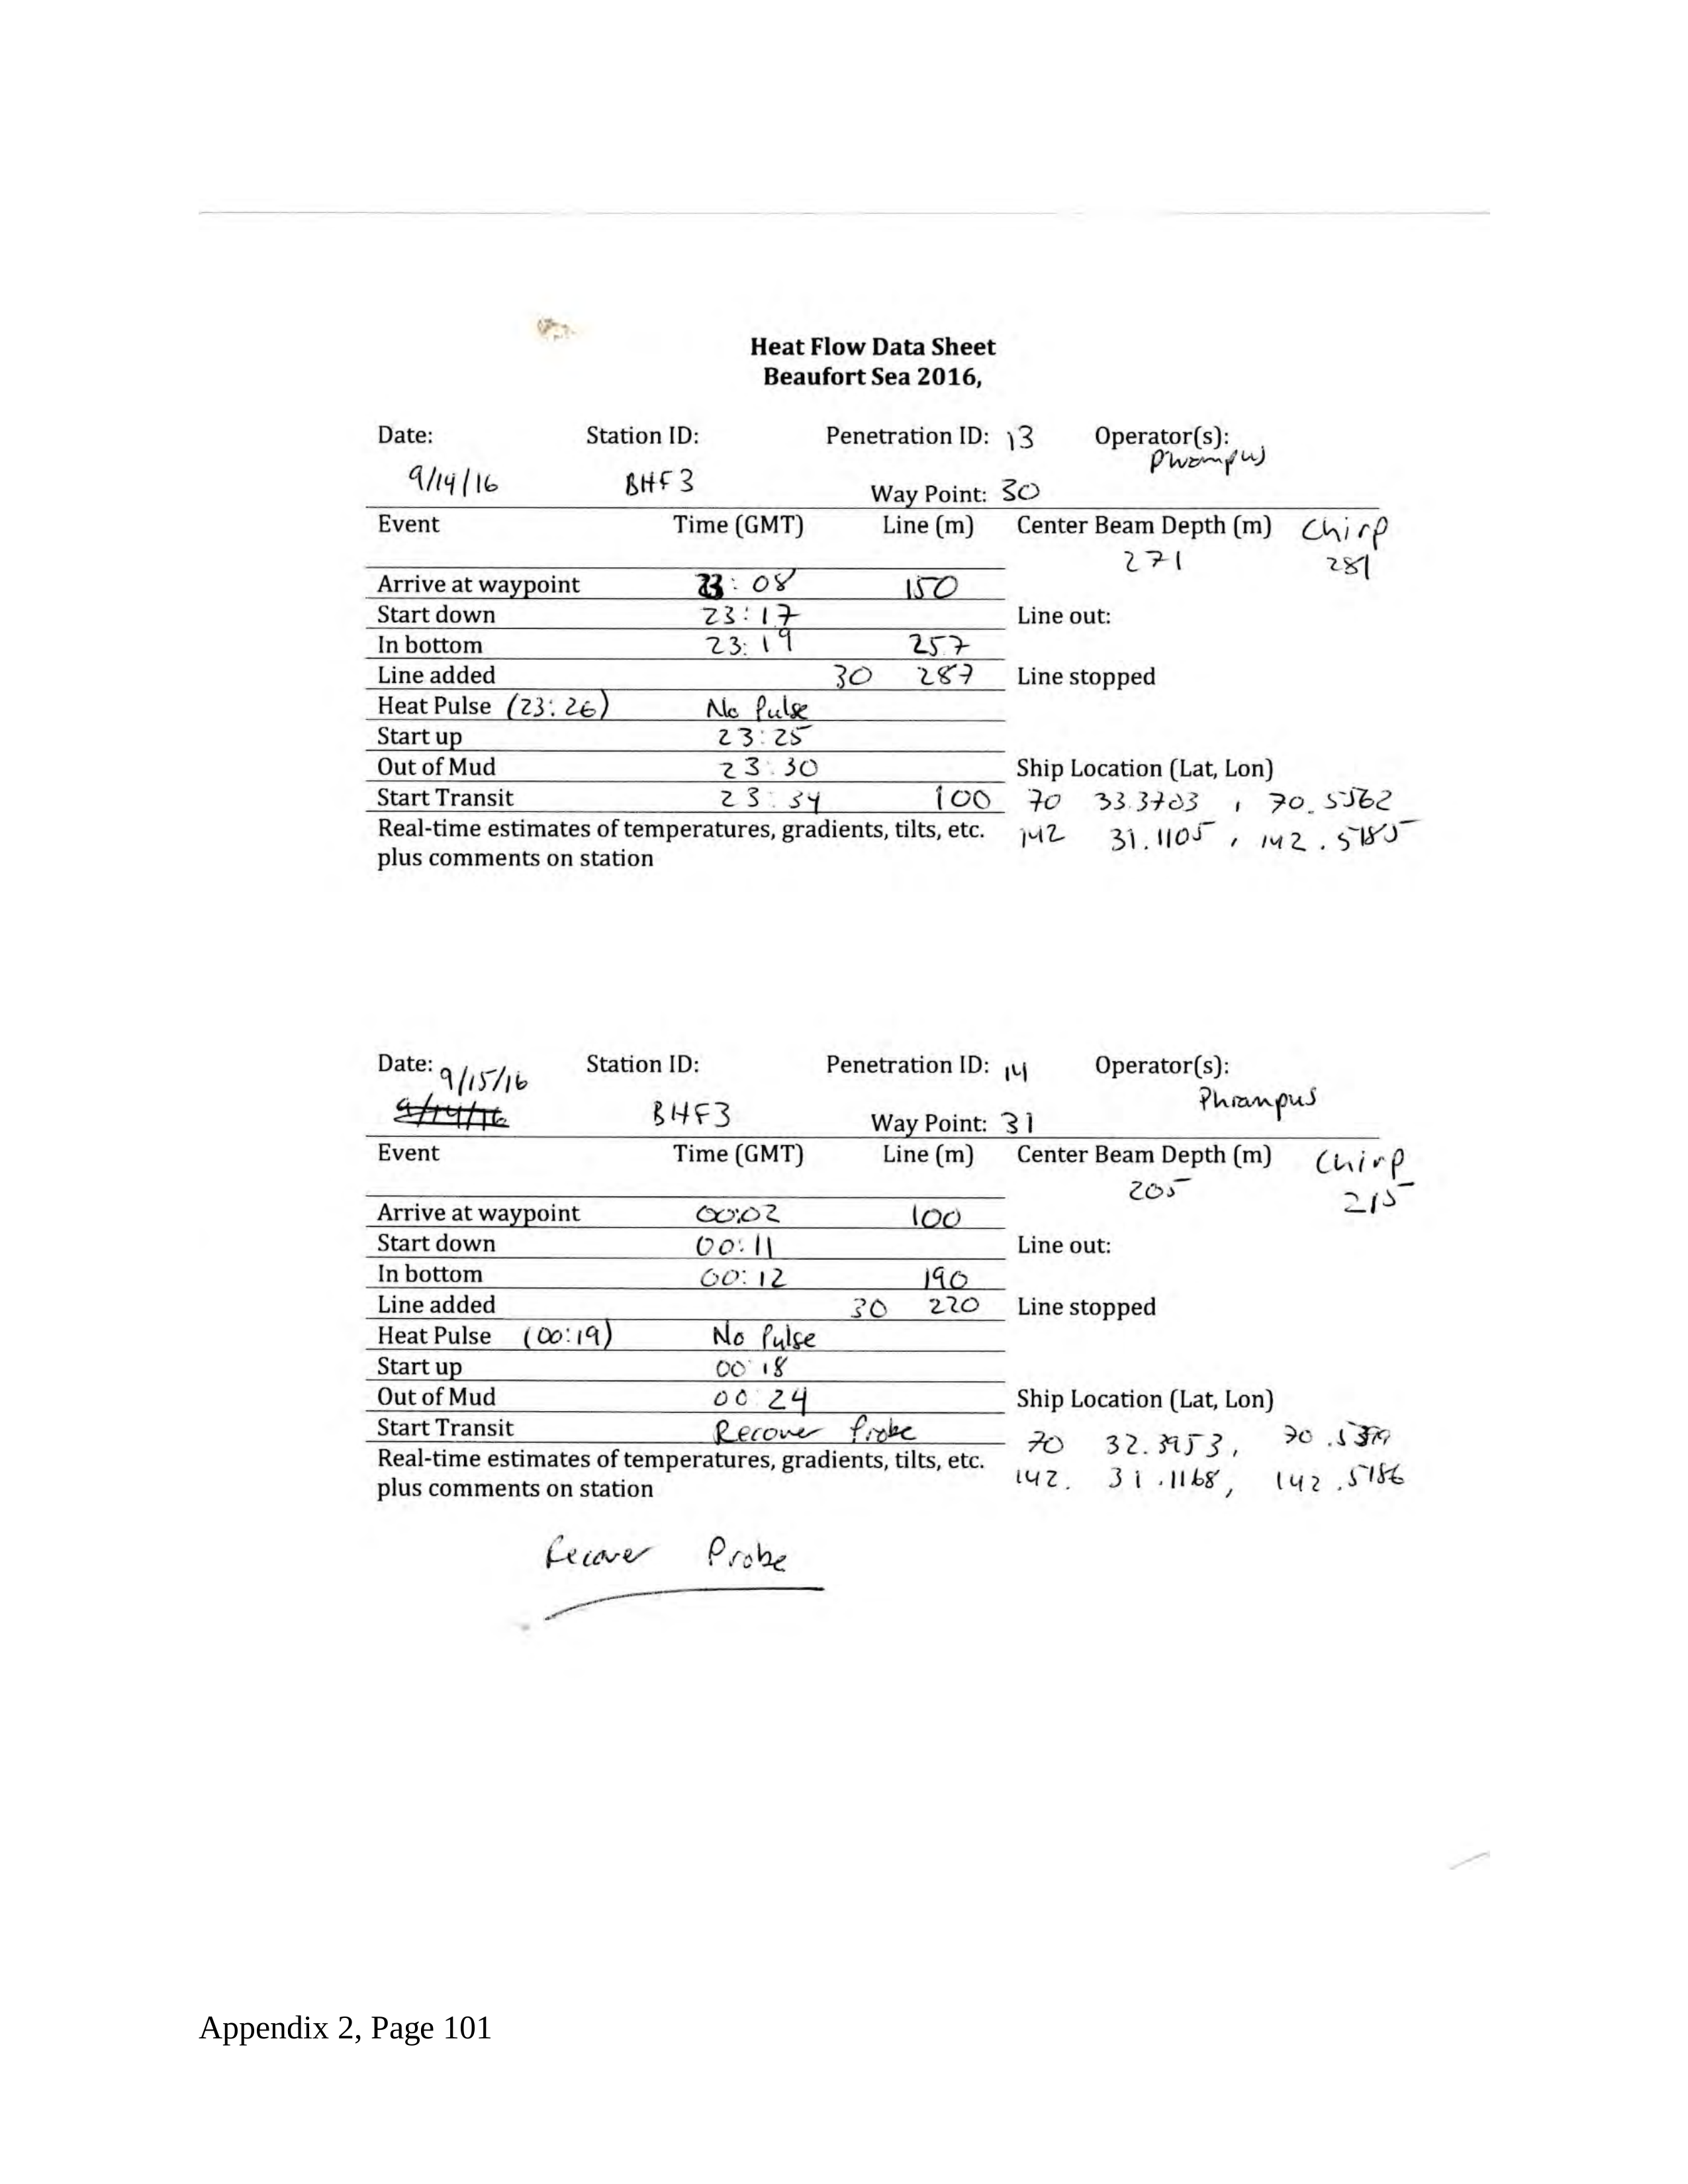 Heat Flow Data Sheet
Beaufort Sea 2016,
Date: Station ID: Penetration ID: 13 Operator(s):
Phrampus
9/14/16 BHF3 Way Point: 30
Event Time (GMT) Line (m) Center Beam Depth (m) Chirp
271 281
Arrive at waypoint 23:08 150
Start down 23:17 Line out:
In bottom 23:19 257
Line added 30 287 Line stopped
Heat Pulse (23:26) No Pulse
Start up 23:25
Out of Mud 23:30 Ship Location (Lat, Lon)
Start Transit 23:34 100 70 33.3703 , 70.5562
Real-time estimates of temperatures, gradients, tilts, etc. 142 31.1105 , 142.5185
plus comments on station
Date: 9/15/16 Station ID: Penetration ID: 14 Operator(s):
Phrampus
9/14/16 BHF3 Way Point: 31
Event Time (GMT) Line (m) Center Beam Depth (m) Chirp
205 215
Arrive at waypoint 00:02 100
Start down 00:11 Line out:
In bottom 00:12 190
Line added 30 220 Line stopped
Heat Pulse (00:19) No Pulse
Start up 00:18
Out of Mud 00:24 Ship Location (Lat, Lon)
Start Transit Recover Probe 70 32.3953,
Real-time estimates of temperatures, gradients, tilts, etc. 142. 31.1168, 142.5186
plus comments on station
Recover Probe
Appendix 2, Page 101